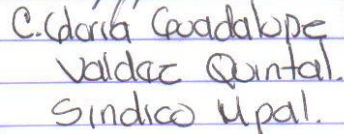 C. Gloria Guadalupe
Valdez Quintal.
Sindico Mpal.